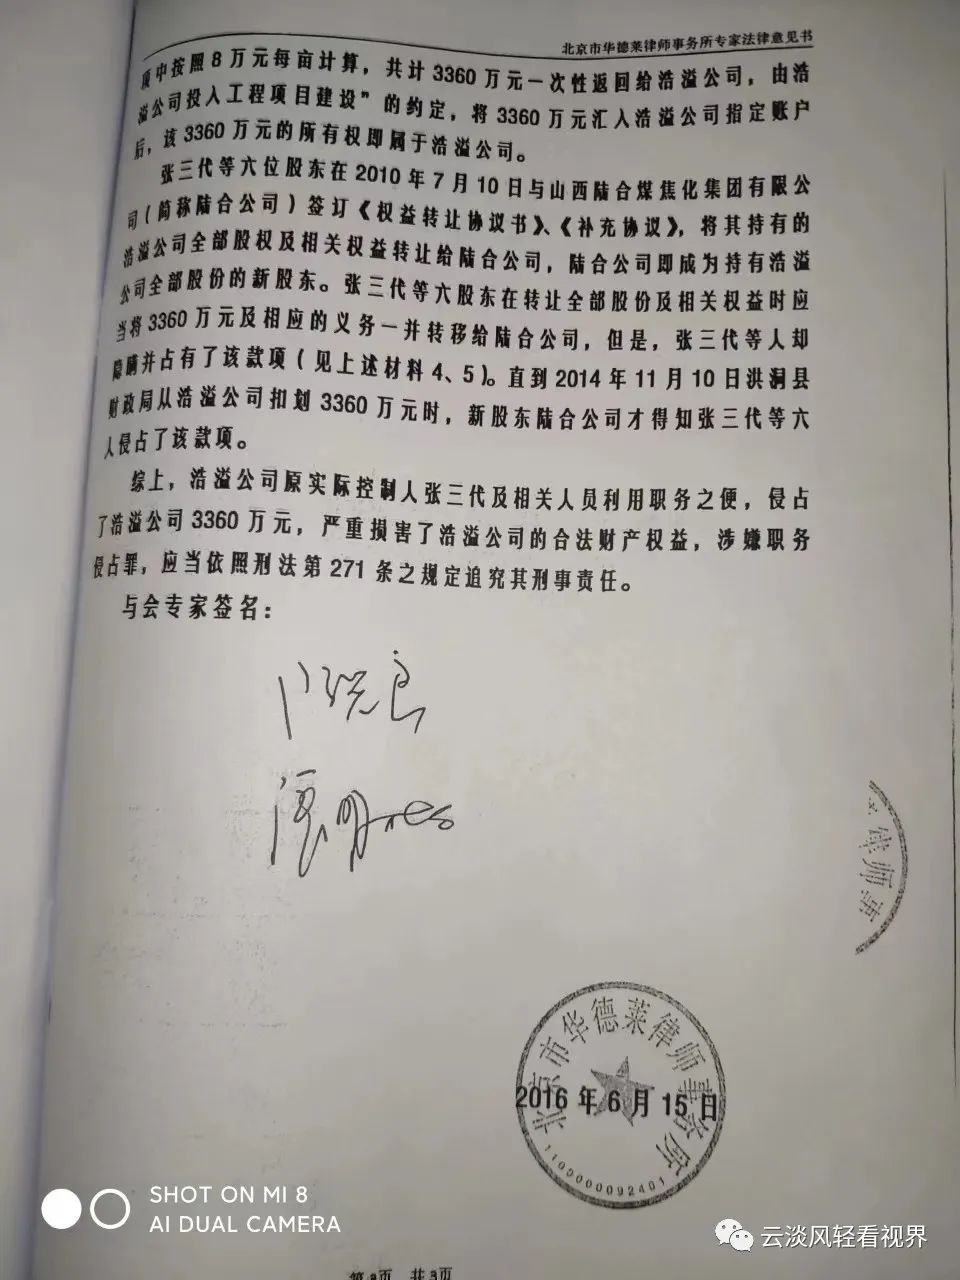 北京市华德莱律师事务所专家法律意见书
项中按照8万元每亩计算，共计3360万元一次性返回给浩溢公司，由浩
溢公司投入工程项目建设”的约定，将3360万元汇入浩溢公司指定账户
后，该3360万元的所有权即属于浩溢公司。
张三代等六位股东在2010年7月10日与山西陆合煤焦化集团有限公
司（简称陆合公司）签订《权益转让协议书》、《补充协议》，将其持有的
浩溢公司全部股权及相关权益转让给陆合公司，陆合公司即成为持有浩溢
公司全部股份的新股东。张三代等六股东在转让全部股份及相关权益时应
当将3360万元及相应的义务一并转移给陆合公司，但是，张三代等人却
隐瞒并占有了该款项（见上述材料4、5）。直到2014年11月10日洪洞县
财政局从浩溢公司扣划3360万元时，新股东陆合公司才得知张三代等六
人侵占了该款项。
综上，浩溢公司原实际控制人张三代及相关人员利用职务之便，侵占
了浩溢公司3360万元，严重损害了浩溢公司的合法财产权益，涉嫌职务
侵占罪，应当依照刑法第271条之规定追究其刑事责任。
与会专家签名：
律师事
北京市华德莱律师事务所
2016年6月15日
1100000092401
SHOT ON MI 8
AI DUAL CAMERA
云淡风轻看视界
第3页 共3页